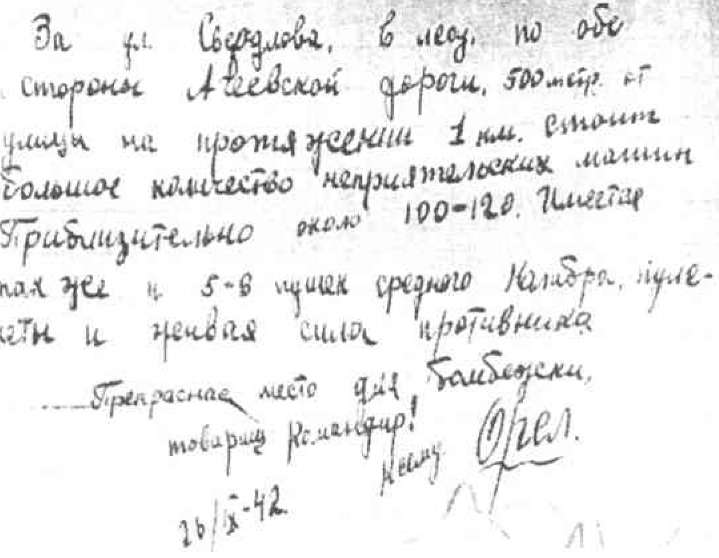 За ул. Свердлова, в лесу, по обе
стороны Агеевской дороги, 500 метр. от
улицы на протяжении 1 км. стоит
большое количество неприятельских машин
Приблизительно около 100-120. Имеется
так же и 5-6 пушек среднего калибра, пуле-
меты и живая сила противника
Прекрасное место для бомбежки,
товарищ командир!
Орел.
26/IX-42.